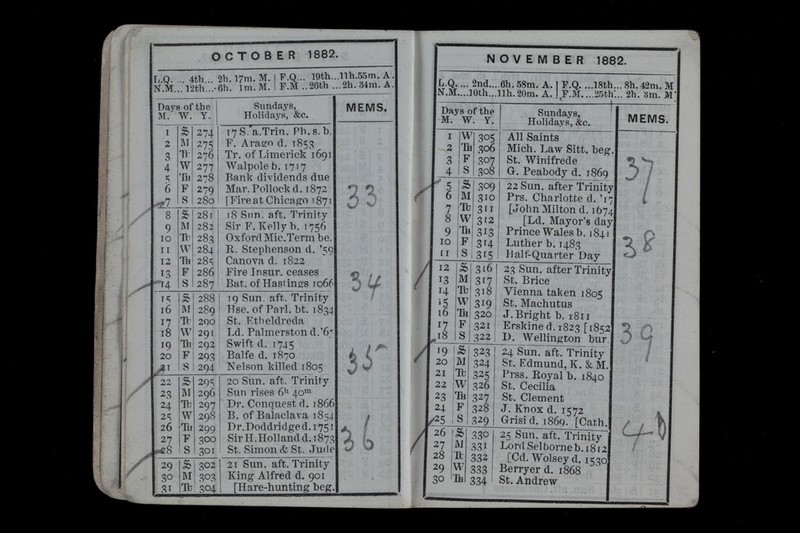 OCTOBER 1882.
L.Q. ... 4th... 2h. 17m. M. | F.Q... 19th...11h.55m. A.
N.M... 12th...6h. 1m. M. | F.M .. 26th ...2h. 34m. A.
Days of the M. W. Y. Sundays, Holidays, &c. MEMS.
1 S 274 17 S. a.Trin. Ph. s. b.
2 M 275 F. Arago d. 1853
3 Tu 276 Tr. of Limerick 1691
4 W 277 Walpole b. 1717
5 Th 278 Bank dividends due
6 F 279 Mar. Pollock d. 1872
7 S 280 [Fire at Chicago 1871 33
8 S 281 18 Sun. aft. Trinity
9 M 282 Sir F. Kelly b. 1756
10 Tu 283 Oxford Mic.Term be.
11 W 284 R. Stephenson d. '59
12 Th 285 Canova d. 1822
13 F 286 Fire Insur. ceases
14 S 287 Bat. of Hastings 1066 34
15 S 288 19 Sun. aft. Trinity
16 M 289 Hse. of Parl. bt. 1834
17 Tu 290 St. Etheldreda
18 W 291 Ld. Palmerston d.
19 Th 292 Swift d. 1745
20 F 293 Balfe d. 1870
21 S 294 Nelson killed 1805 35
22 S 295 20 Sun. aft. Trinity
23 M 296 Sun rises 6h 40m
24 Tu 297 Dr. Conquest d. 1866
25 W 298 B. of Balaclava 1854
26 Th 299 Dr. Doddridge d. 1751
27 F 300 Sir H. Holland d. 1873
28 S 301 St. Simon & St. Jude 36
29 S 302 21 Sun. aft. Trinity
30 M 303 King Alfred d. 901
31 Tu 304 [Hare-hunting beg.
NOVEMBER 1882.
L.Q. ... 2nd....6h. 58m. A. | F.Q. ...18th... 8h. 42m. M
N.M....10th...11h. 20m. A. | F.M....25th... 2h. 3m. M
Days of the M. W. Y. Sundays, Holidays, &c. MEMS.
1 W 305 All Saints
2 Th 306 Mich. Law Sitt. beg.
3 F 307 St. Winifrede
4 S 308 G. Peabody d. 1869 37
5 S 309 22 Sun. after Trinity
6 M 310 Prs. Charlotte d. '17
7 Tu 311 [John Milton d. 1674
8 W 312 [Ld. Mayor's day
9 Th 313 Prince Wales b. 1841
10 F 314 Luther b. 1483
11 S 315 Half-Quarter Day 38
12 S 316 23 Sun. after Trinity
13 M 317 St. Brice
14 Tu 318 Vienna taken 1805
15 W 319 St. Machutus
16 Th 320 J. Bright b. 1811
17 F 321 Erskine d. 1823 [1852
18 S 322 D. Wellington bur 39
19 S 323 24 Sun. aft. Trinity
20 M 324 St. Edmund, K. & M.
21 Tu 325 Prss. Royal b. 1840
22 W 326 St. Cecilia
23 Th 327 St. Clement
24 F 328 J. Knox d. 1572
25 S 329 Grisi d. 1869. [Cath. 40
26 S 330 25 Sun. aft. Trinity
27 M 331 Lord Selborne b. 1812
28 Tu 332 [Cd. Wolsey d. 1530
29 W 333 Berryer d. 1868
30 Th 334 St. Andrew